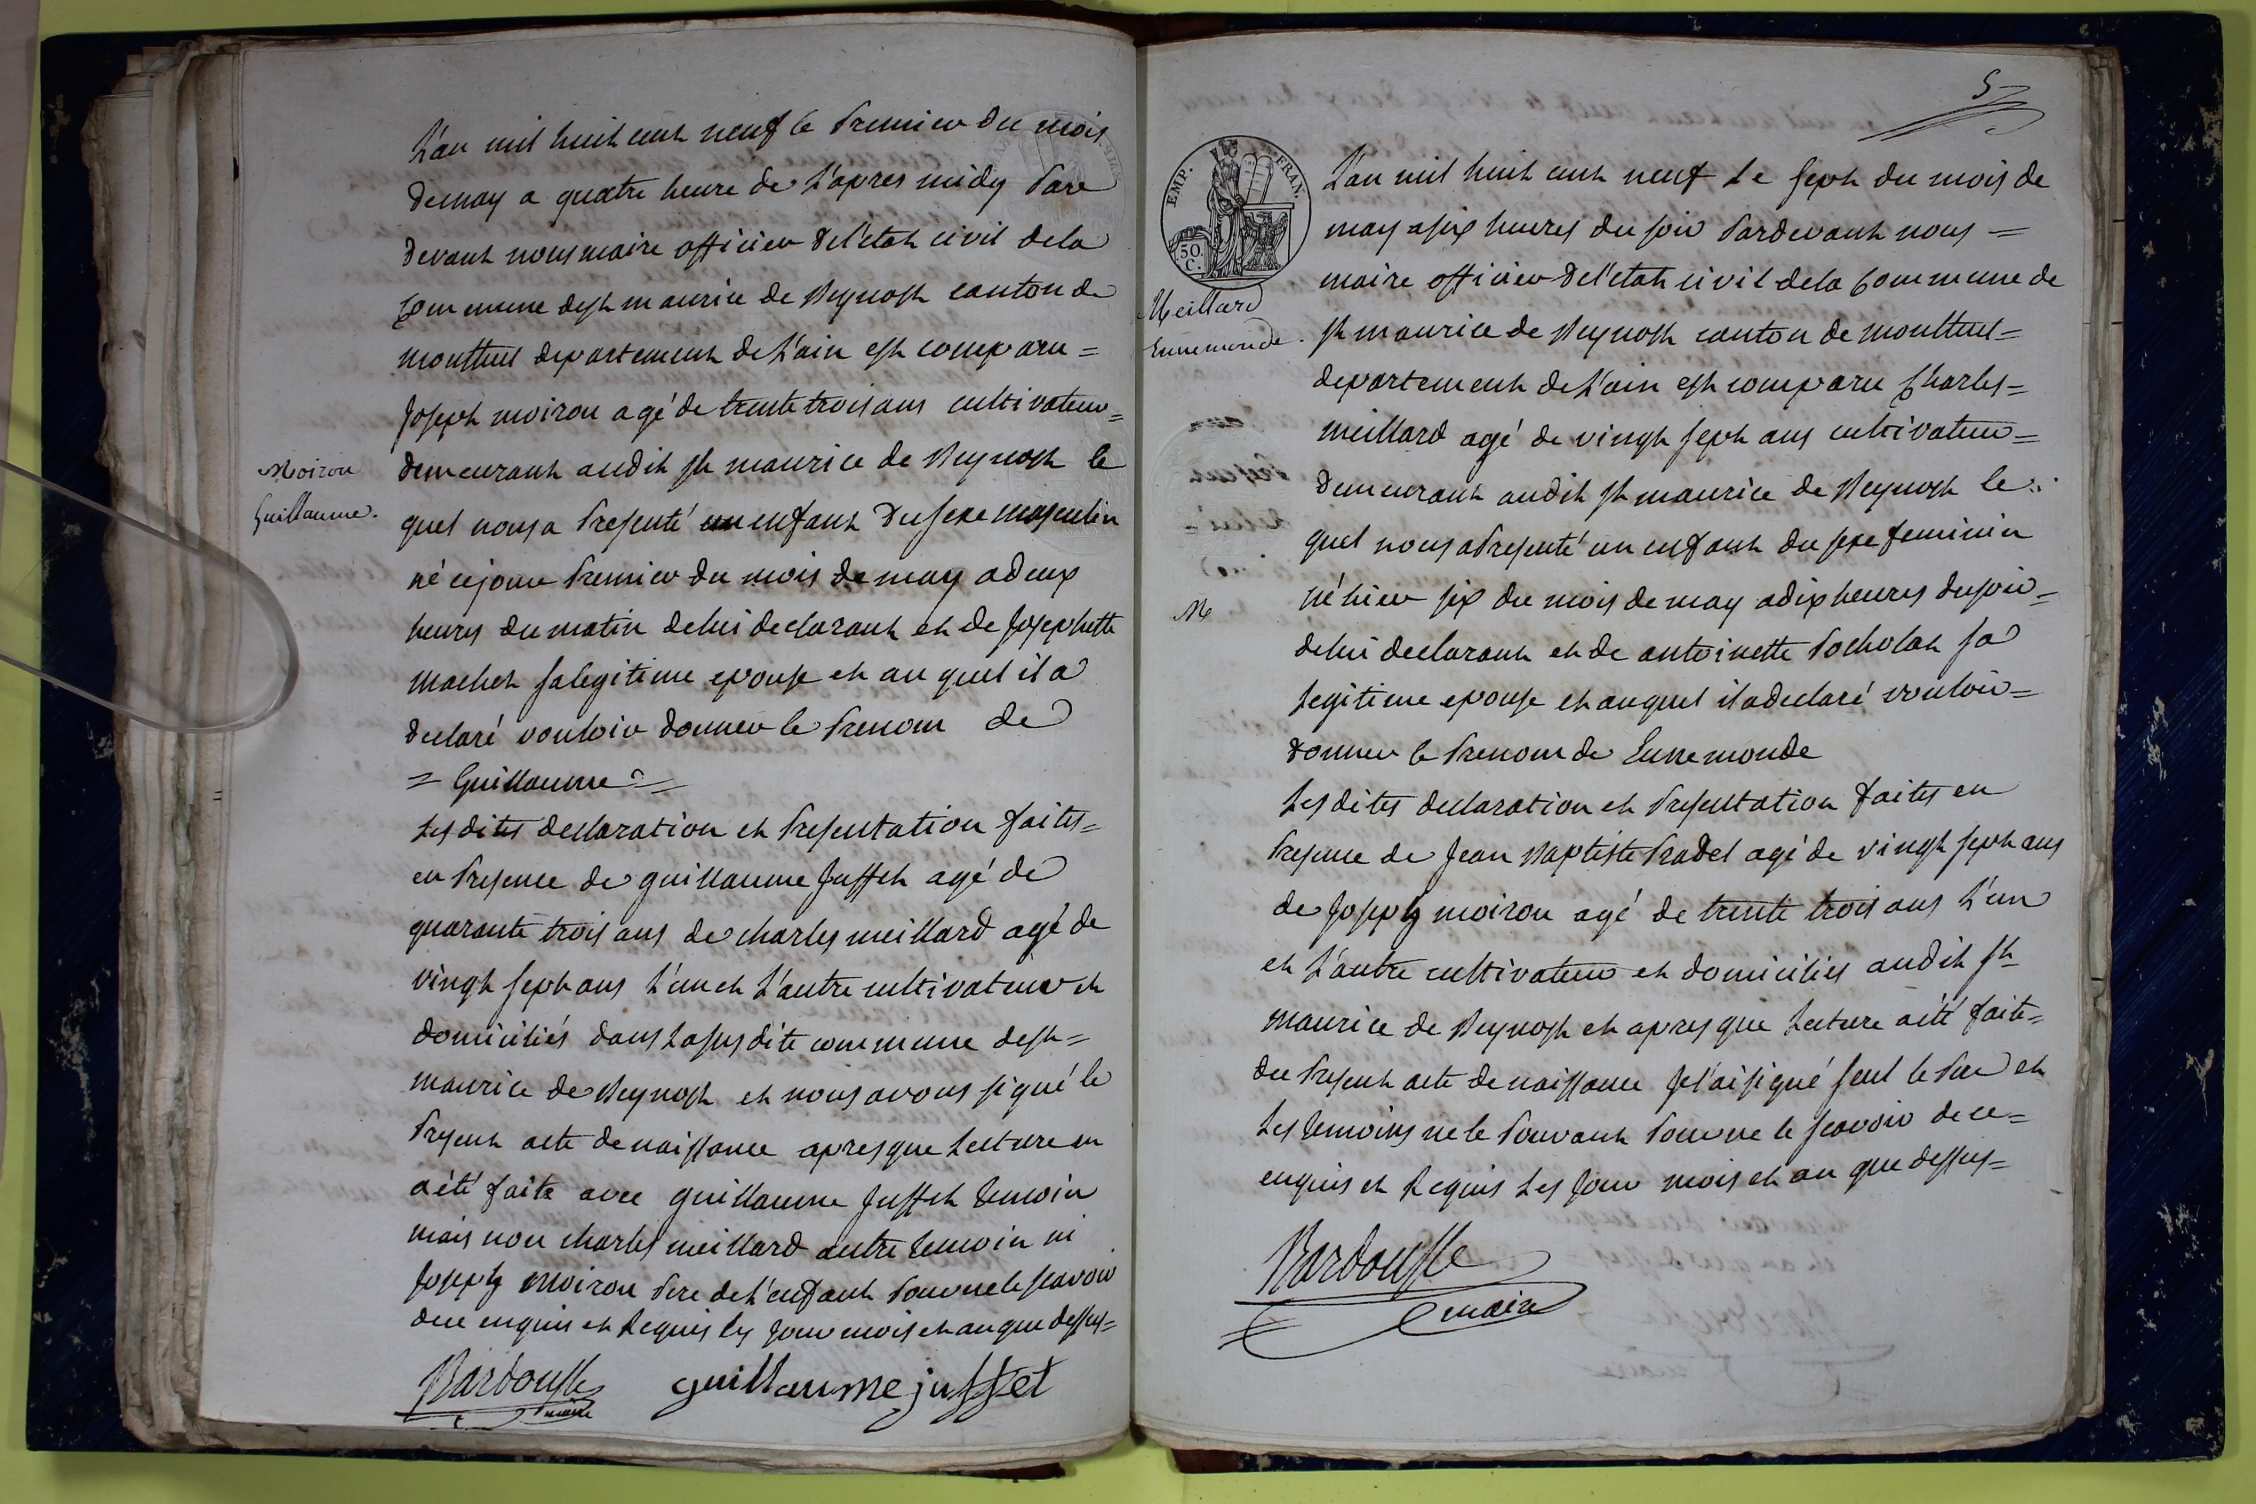 L'an mil huit cent neuf le premier du mois
de may a quatre heure de l'apres midy par
devant nous maire officier de l'etat civil de la
commune de st maurice de Beynost canton de
montluel departement de l'ain est comparu =
joseph moiron agé de trente trois ans cultivateur =
demeurant audit st maurice de Beynost le
quel nous a presenté un enfant du sexe masculin
né ce jour premier du mois de may a deux
heures du matin de lui declarant et de josephette
machet sa legitime epouse et au quel il a
declaré vouloir donner le prenom de
= Guillaume =
Les dites declaration et presentation faites =
en presence de guillaume juffet agé de
quarante trois ans de charles meillard agé de
vingt sept ans l'un et l'autre cultivateur et
domiciliés dans la susdite commune de st =
maurice de Beynost et nous avons signé le
present acte de naissance apres que lecture en
a été faite avec guillaume juffet temoin
mais non charles meillard autre temoin ni
joseph moiron pere de l'enfant pour ne le scavoir
de ce enquis et requis les jour mois et an que dessus =
Moiron
Guillaume.
Bardousse
maire
guillaume juffet
5
EMP. FRAN.
50
C.
Meillard
Ennemonde.
M
L'an mil huit cent neuf Le sept du mois de
may a six heures du soir pardevant nous =
maire officier de l'etat civil de la commune de
st maurice de Beynost canton de montluel =
departement de l'ain est comparu Charles =
meillard agé de vingt sept ans cultivateur =
demeurant audit st maurice de Beynost le
quel nous a presenté un enfant du sexe feminin
né hier six du mois de may a dix heures du soir =
de lui declarant et de antoinette pocholat sa
legitime epouse et auquel il a declaré vouloir =
donner le prenom de Ennemonde
Les dites declaration et presentation faites en
presence de jean Baptiste pradel agé de vingt sept ans
de joseph moiron agé de trente trois ans l'un
et l'autre cultivateur et domiciliés audit st
maurice de Beynost et apres que lecture a été faite =
du present acte de naissance je l'ai signé seul le pere et
Les temoins ne le pouvant pour ne le scavoir de ce =
enquis et requis Les jour mois et an que dessus =
Bardousse
maire